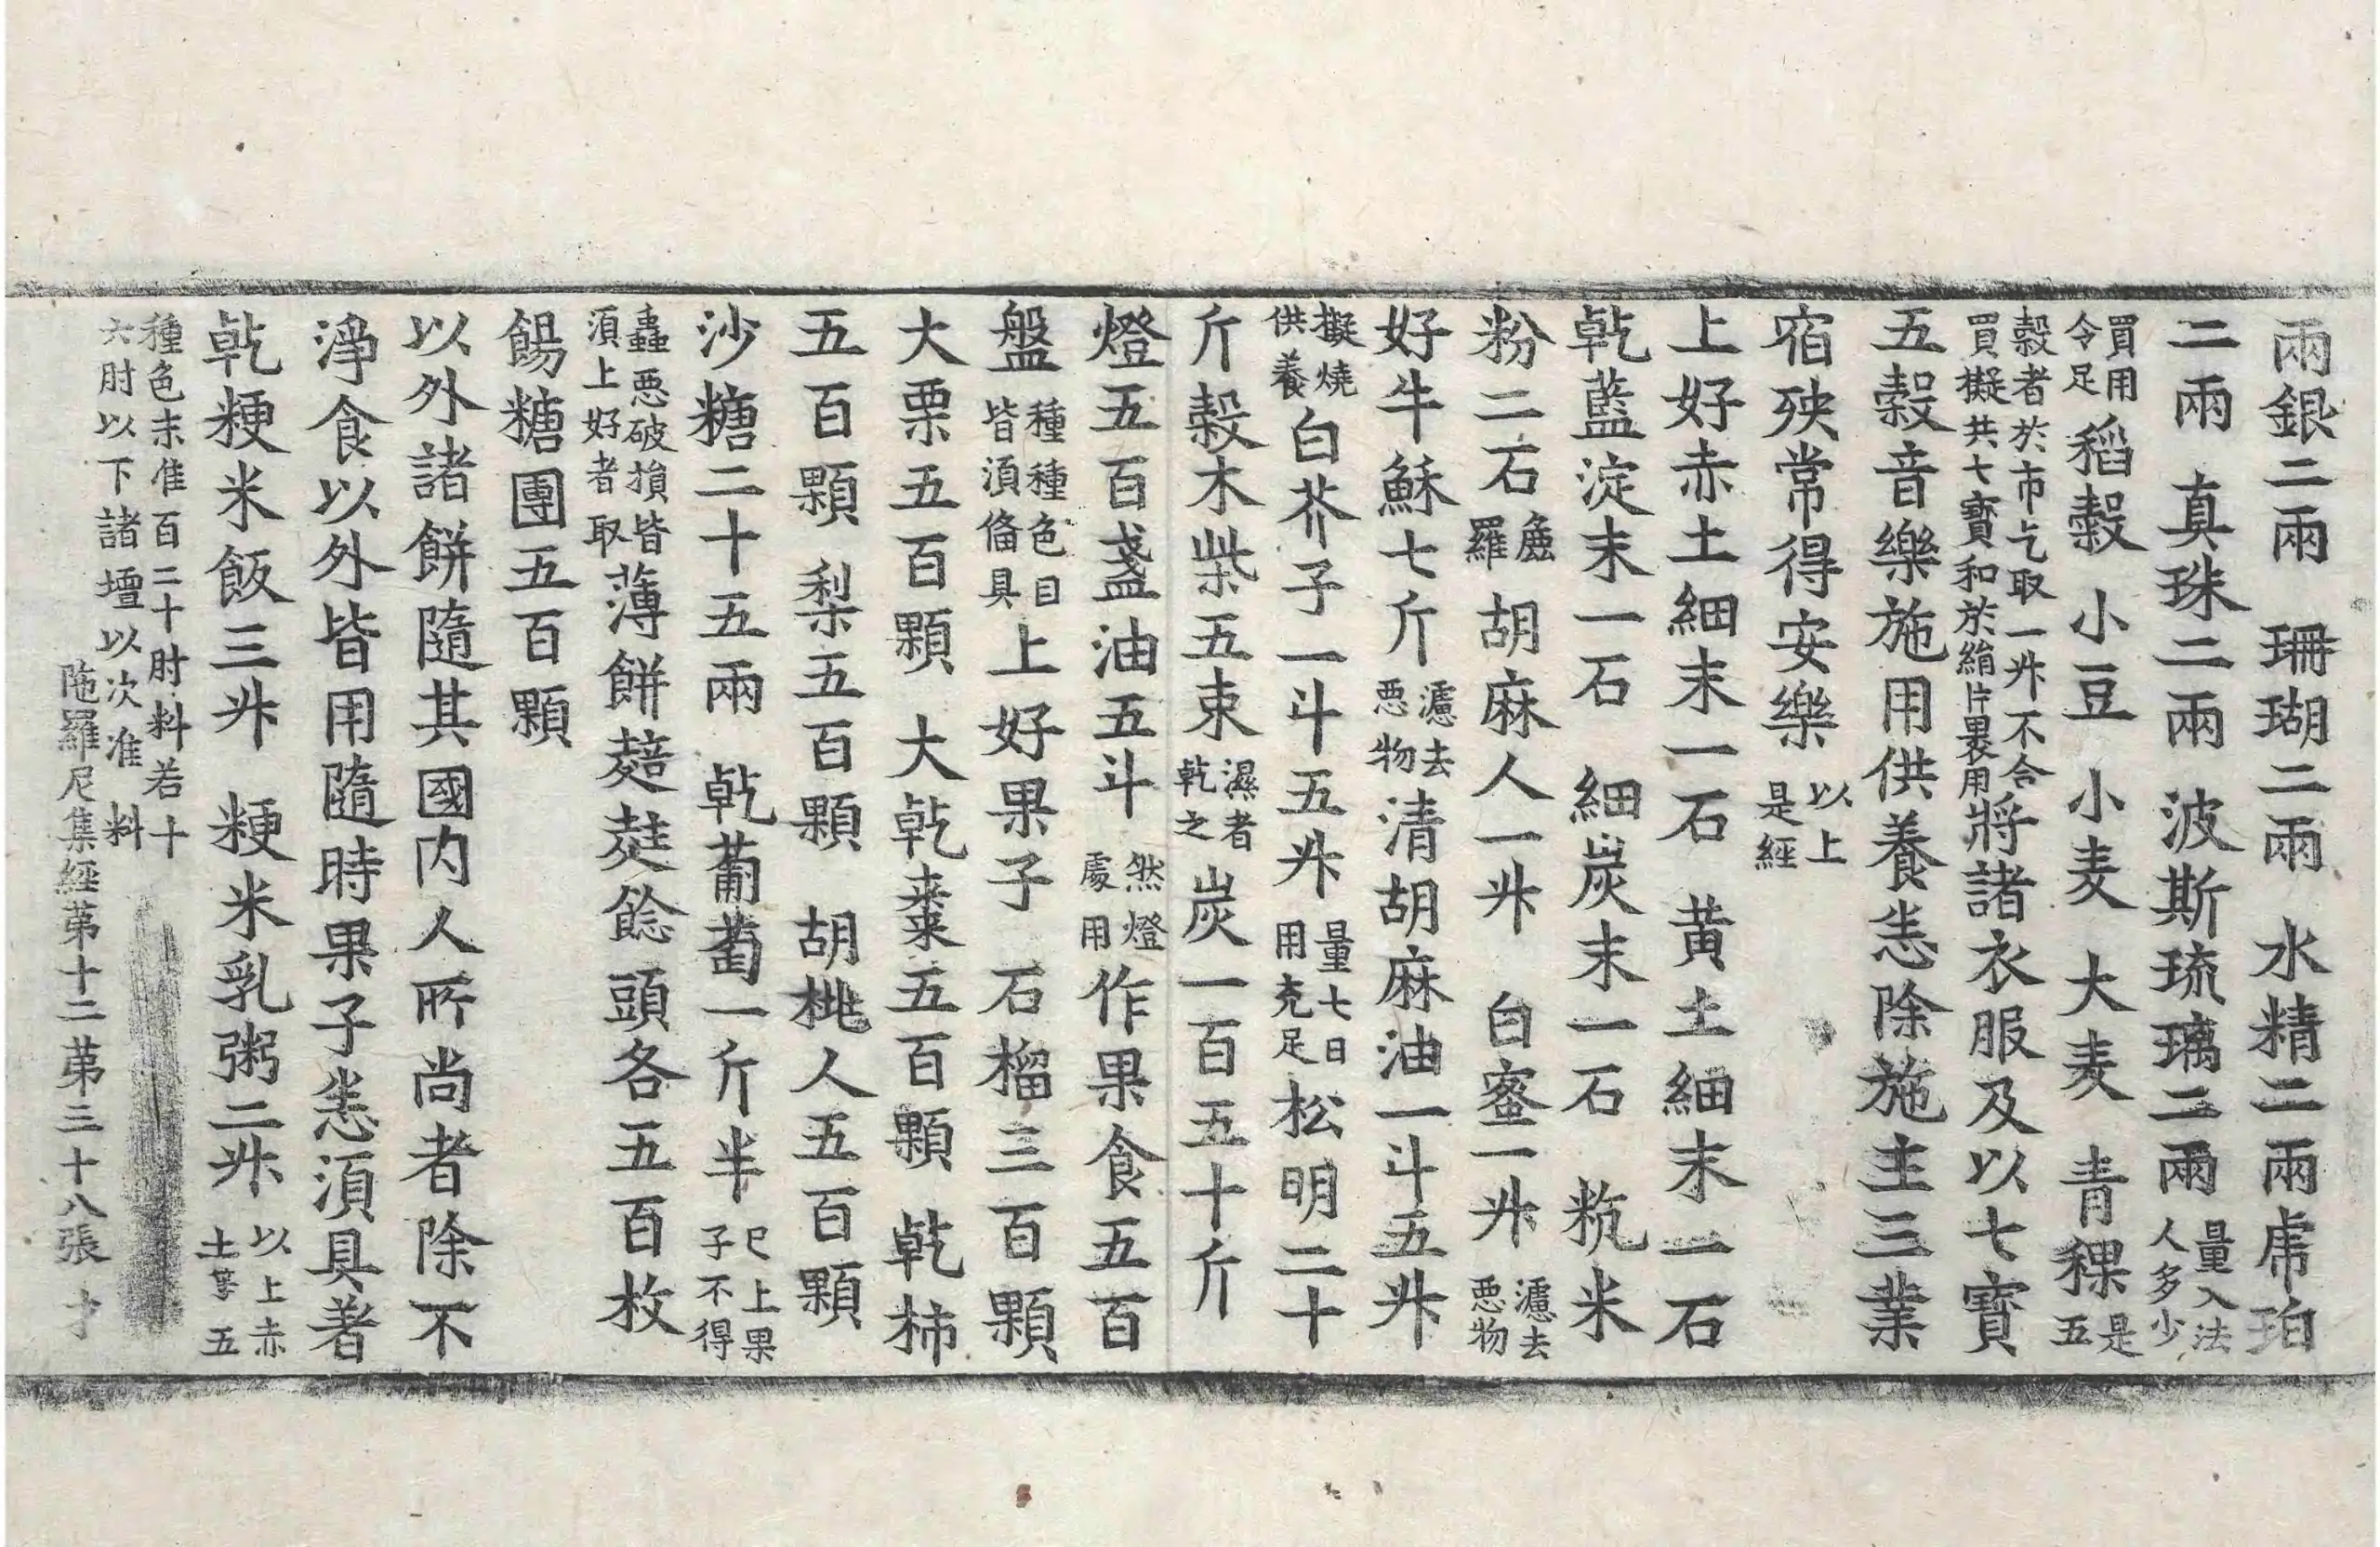 兩銀二兩　珊瑚二兩　水精二兩虎珀
二兩　真珠二兩　波斯琉璃二兩量入法人多少
買用令足稻穀　小豆　小麦　大麦　青稞是五
穀者於市乞取一升不合買擬共七寶和於絹片褁用將諸衣服及以七寶
五穀音樂施用供養恙除施主三業
宿殃常得安樂以上是經
上好赤土細末一石　黄土細末一石
乹藍淀末一石　細炭末一石　粇米
粉二石麁羅　胡麻人一升　白蜜一升濾去悪物
好牛穌七斤濾去悪物清胡麻油一斗五升
擬燒供養白芥子一斗五升量七日用充足松明二十
斤穀木柴五束濕者乹之炭一百五十斤
燈五百盞油五斗然燈處用作果食五百
盤種種色目皆湏俻具上好果子　石榴三百顆
大栗五百顆　大乹棗五百顆　乹柿
五百顆　梨五百顆　胡桃人五百顆
沙糖二十五兩　乹蒲萄一斤半已上果子不得
蟲悪破損皆湏上好者取薄餅䴺䴴餎頭各五百枚
餳糖團五百顆
以外諸餅隨其國内人所尚者除不
淨食以外皆用隨時果子恙湏具著
乹粳米飯三升　粳米乳粥二升以上赤土等五
種色末准百二十肘料若十六肘以下諸壇以次准料
陁羅尼集經苐十二苐三十八張　才